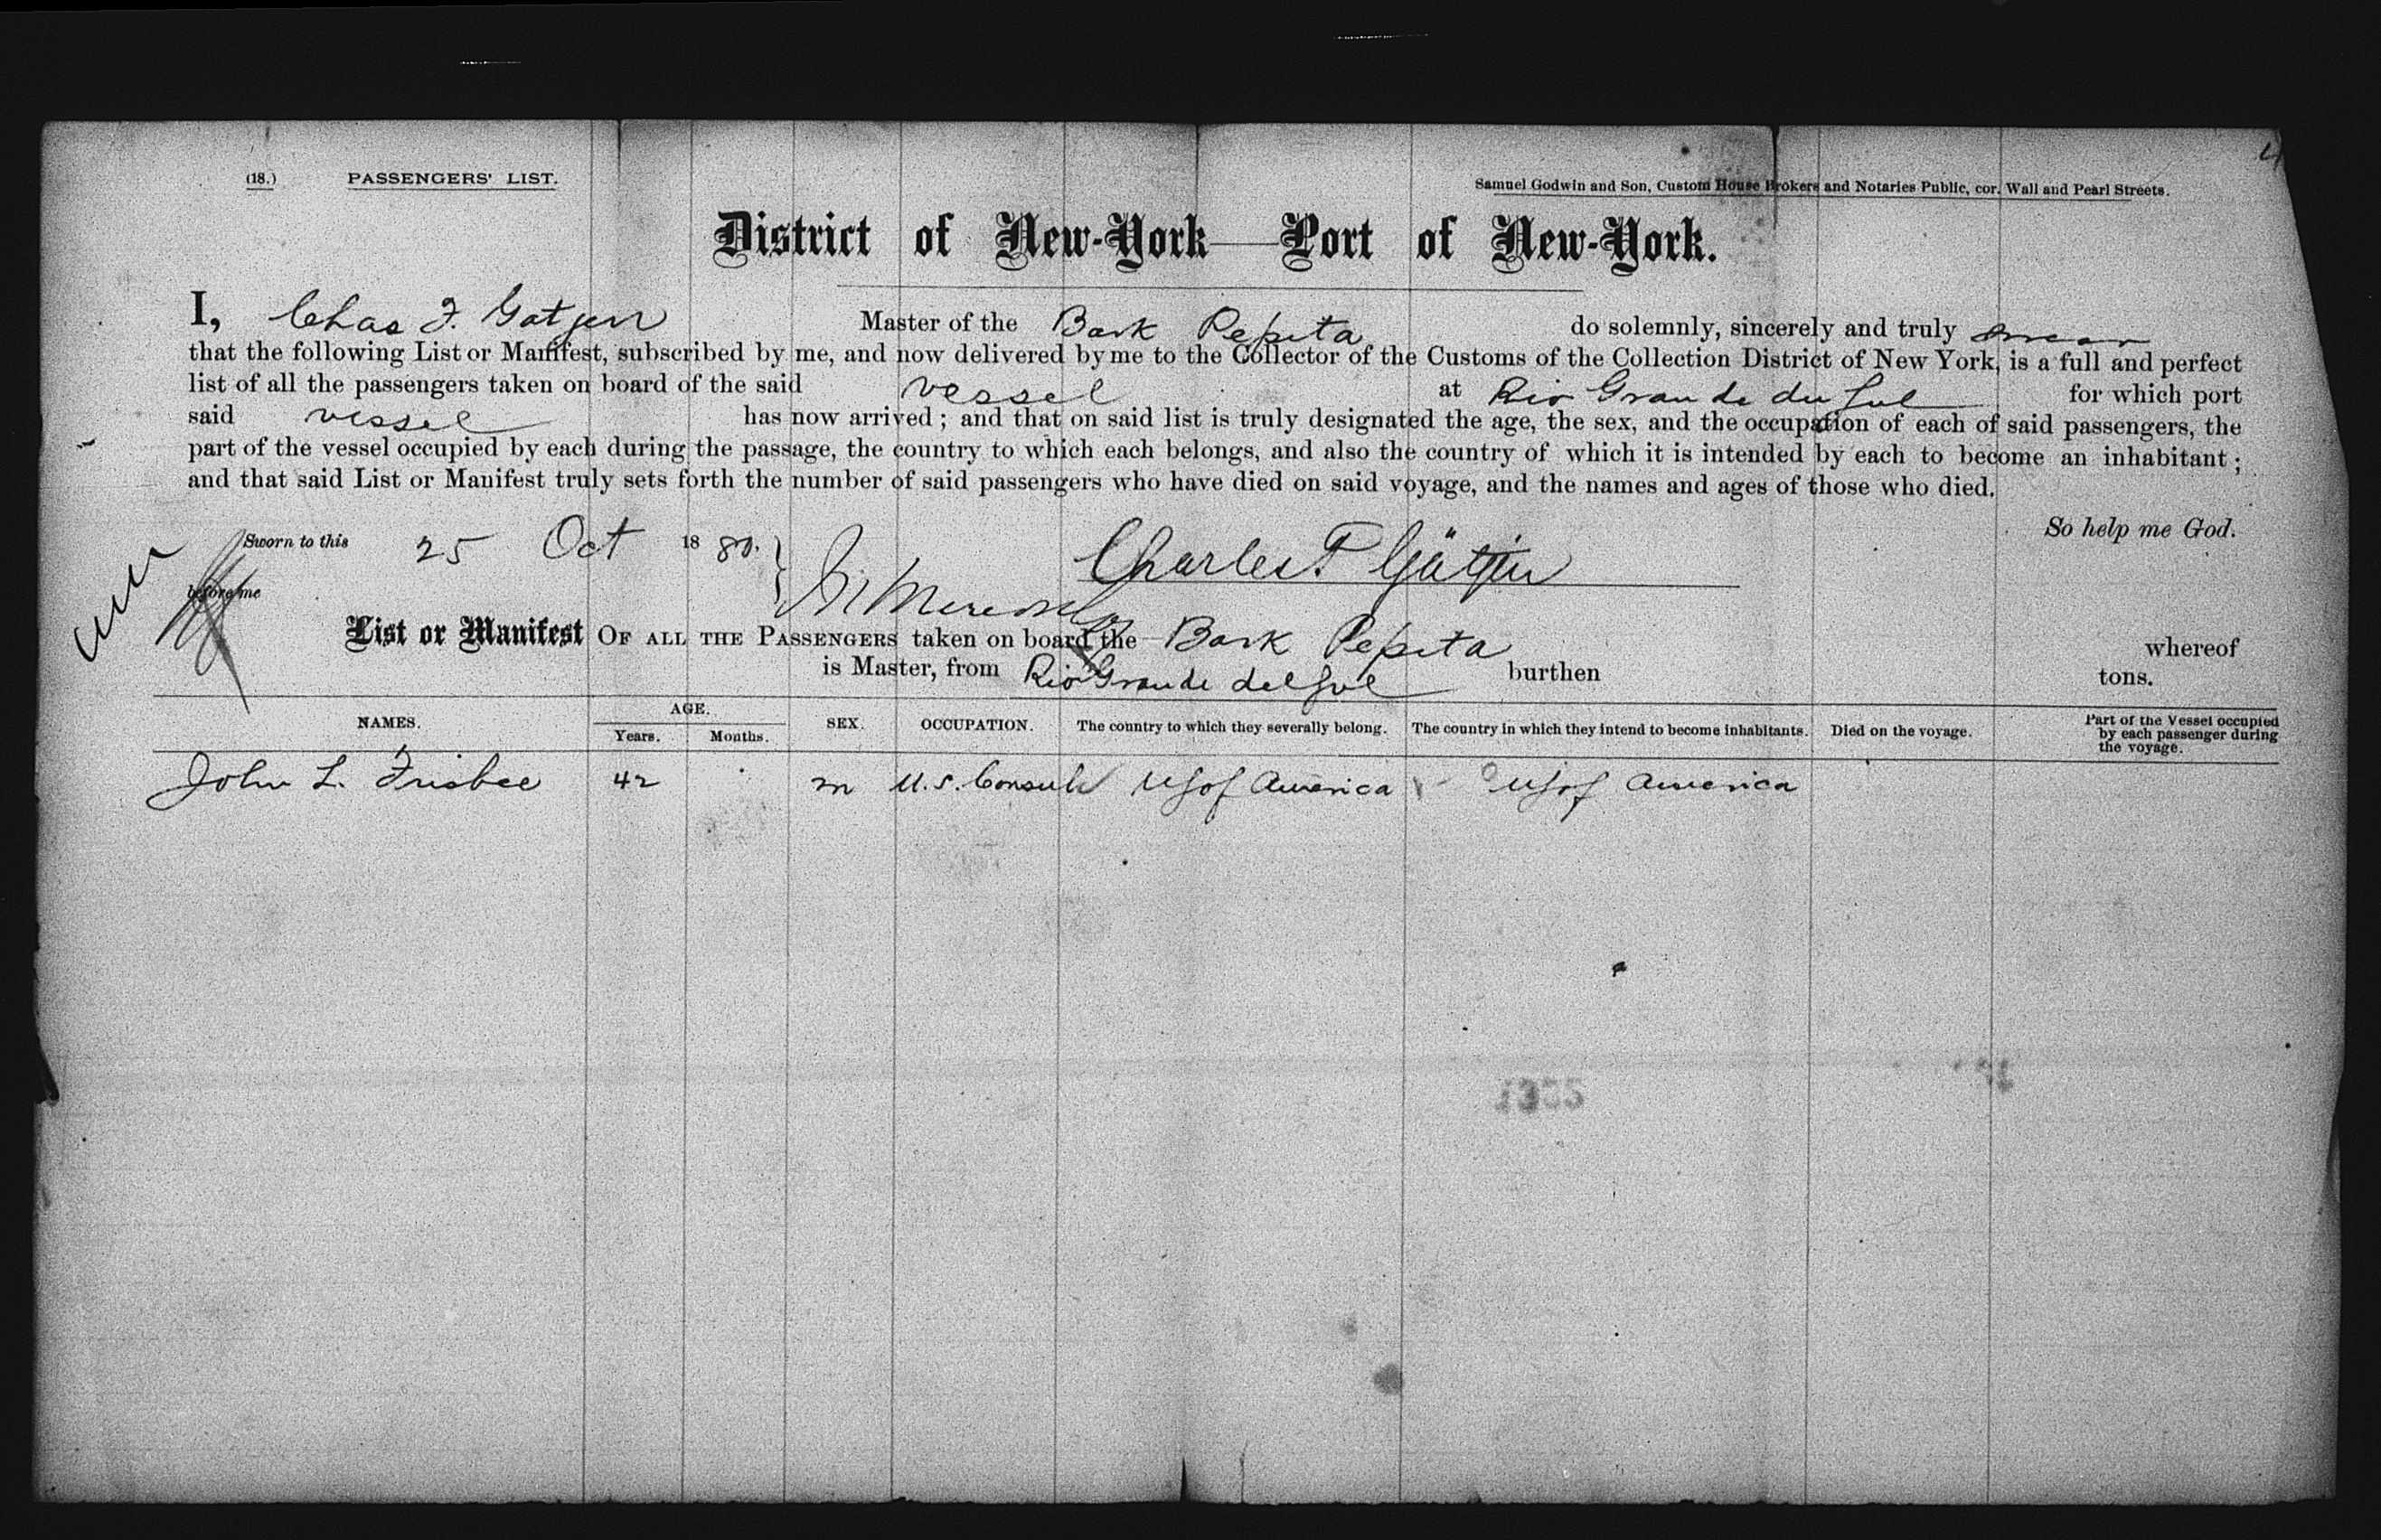 (18.) PASSENGERS' LIST. Samuel Godwin and Son, Custom House Brokers and Notaries Public, cor. Wall and Pearl Streets.
District of New-York—Port of New-York.
I, Chas F. Gatjen Master of the Bark Pepita do solemnly, sincerely and truly swear
that the following List or Manifest, subscribed by me, and now delivered by me to the Collector of the Customs of the Collection District of New York, is a full and perfect
list of all the passengers taken on board of the said vessel at Rio Grande du Sul for which port
said vessel has now arrived; and that on said list is truly designated the age, the sex, and the occupation of each of said passengers, the
part of the vessel occupied by each during the passage, the country to which each belongs, and also the country of which it is intended by each to become an inhabitant;
and that said List or Manifest truly sets forth the number of said passengers who have died on said voyage, and the names and ages of those who died.
So help me God.
Sworn to this 25 Oct 1880. Charles F Gätjen
before me
List or Manifest OF ALL THE PASSENGERS taken on board the Bark Pepita whereof
is Master, from Rio Grande del Sul burthen tons.
NAMES. AGE. Years. Months. SEX. OCCUPATION. The country to which they severally belong. The country in which they intend to become inhabitants. Died on the voyage. Part of the Vessel occupied by each passenger during the voyage.
John L. Frisbee 42 m U.S. Consul US of America US of America